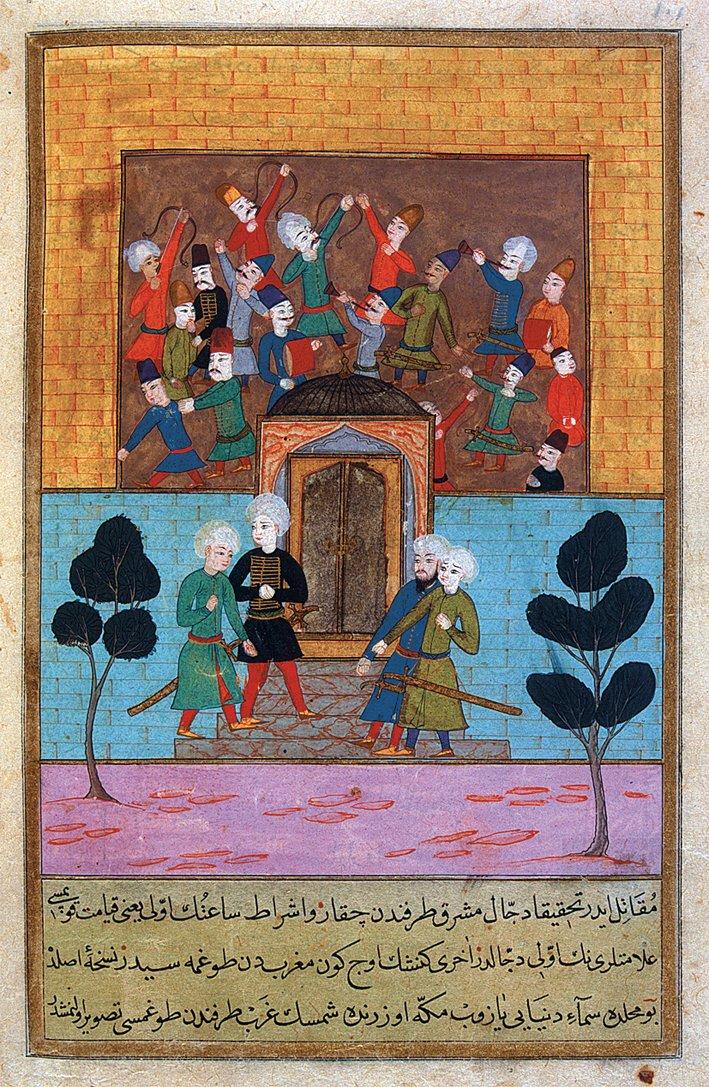 مُقَاتِل ايدر تحقيقا دجّال مشرق طرفندن چقار واشراط ساعتك اوّلى يعنى قيامت
علامتلرى نك اوّلى دجّالدر اخرى كنشك اوج كون مغربدن طوغمه سيدر نسخهٔ اصلده
بو محلده سماء دنيايى يازوب مكّه اوزرنده شمسك غرب طرفندن طوغمسى تصوير اولنمشدر